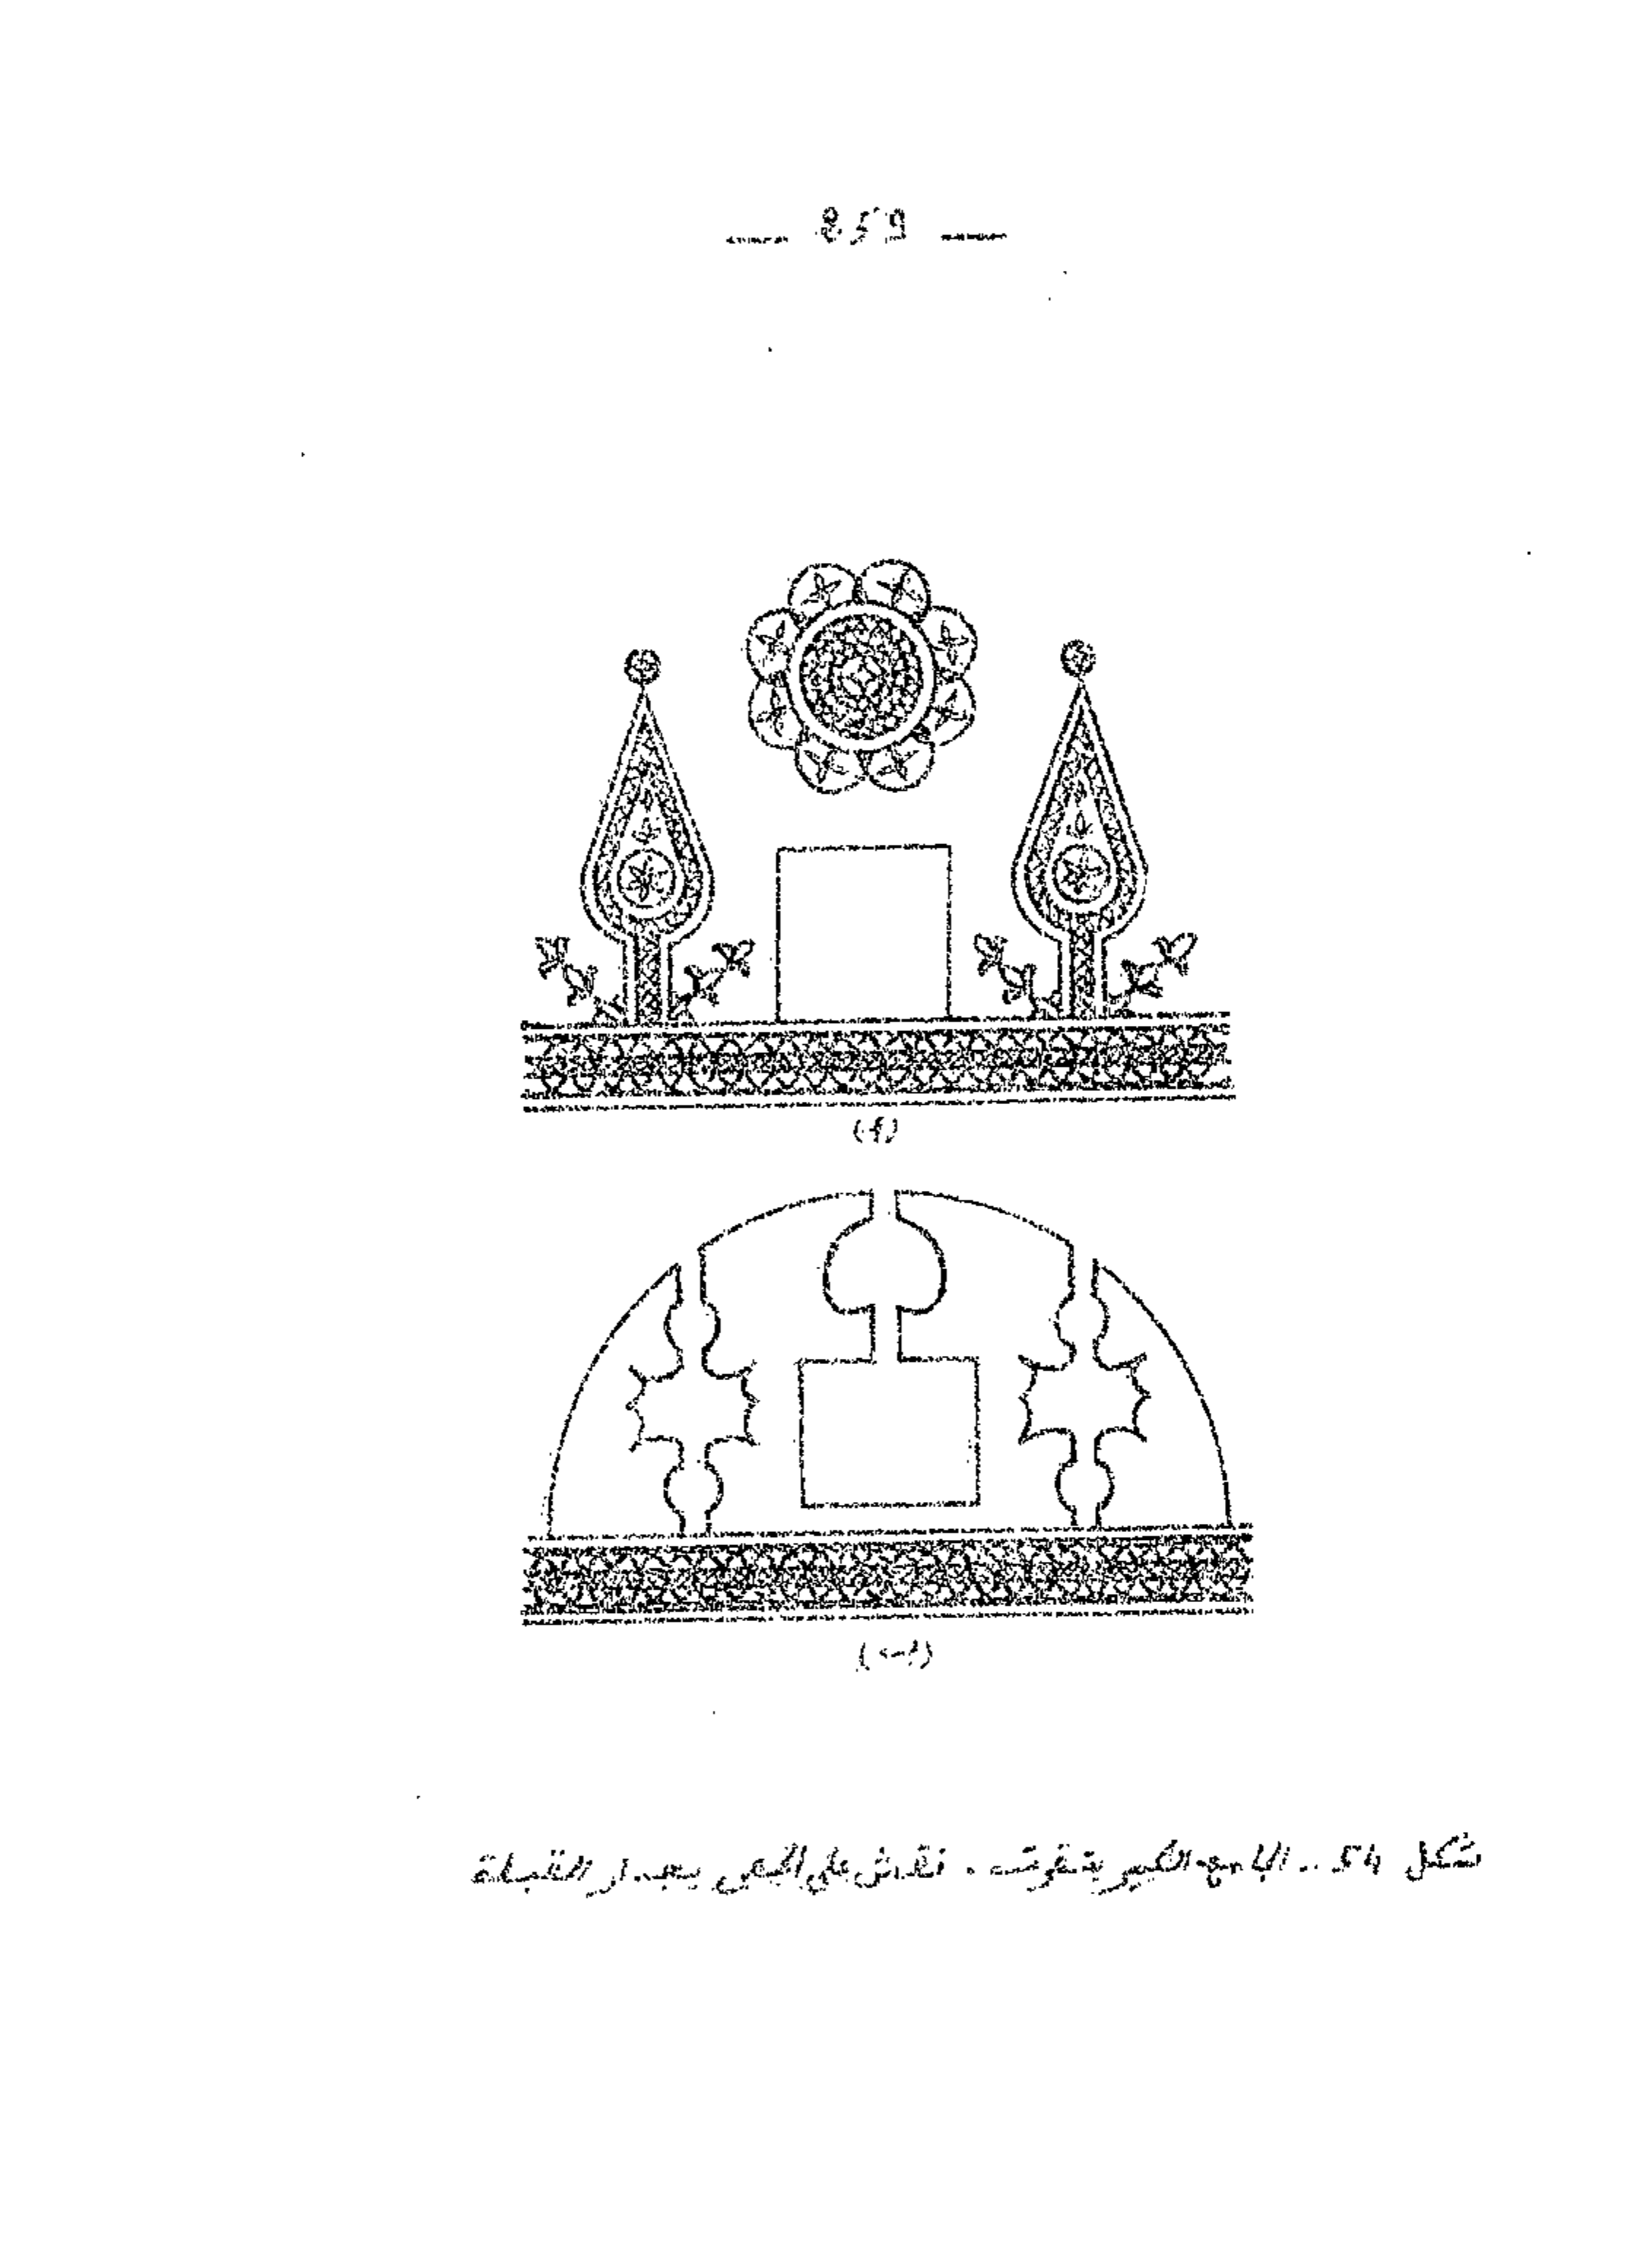 — 859 —
(أ)
(ب)
شكل 54 .. الجامع الكبير بتقرت . نقش على الجص بجدار القبلة